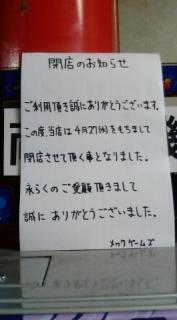 閉店のお知らせ
ご利用頂き誠にありがとうございます。
この度当店は4月27(水)をもちまして
閉店させて頂く事となりました。
永らくのご愛顧頂きまして
誠にありがとうございました。
メックゲームズ